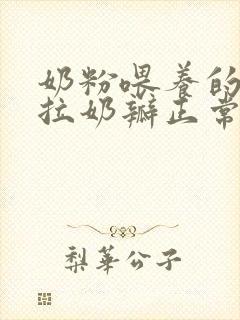 奶粉喂养的
拉奶瓣正常
梨華公子